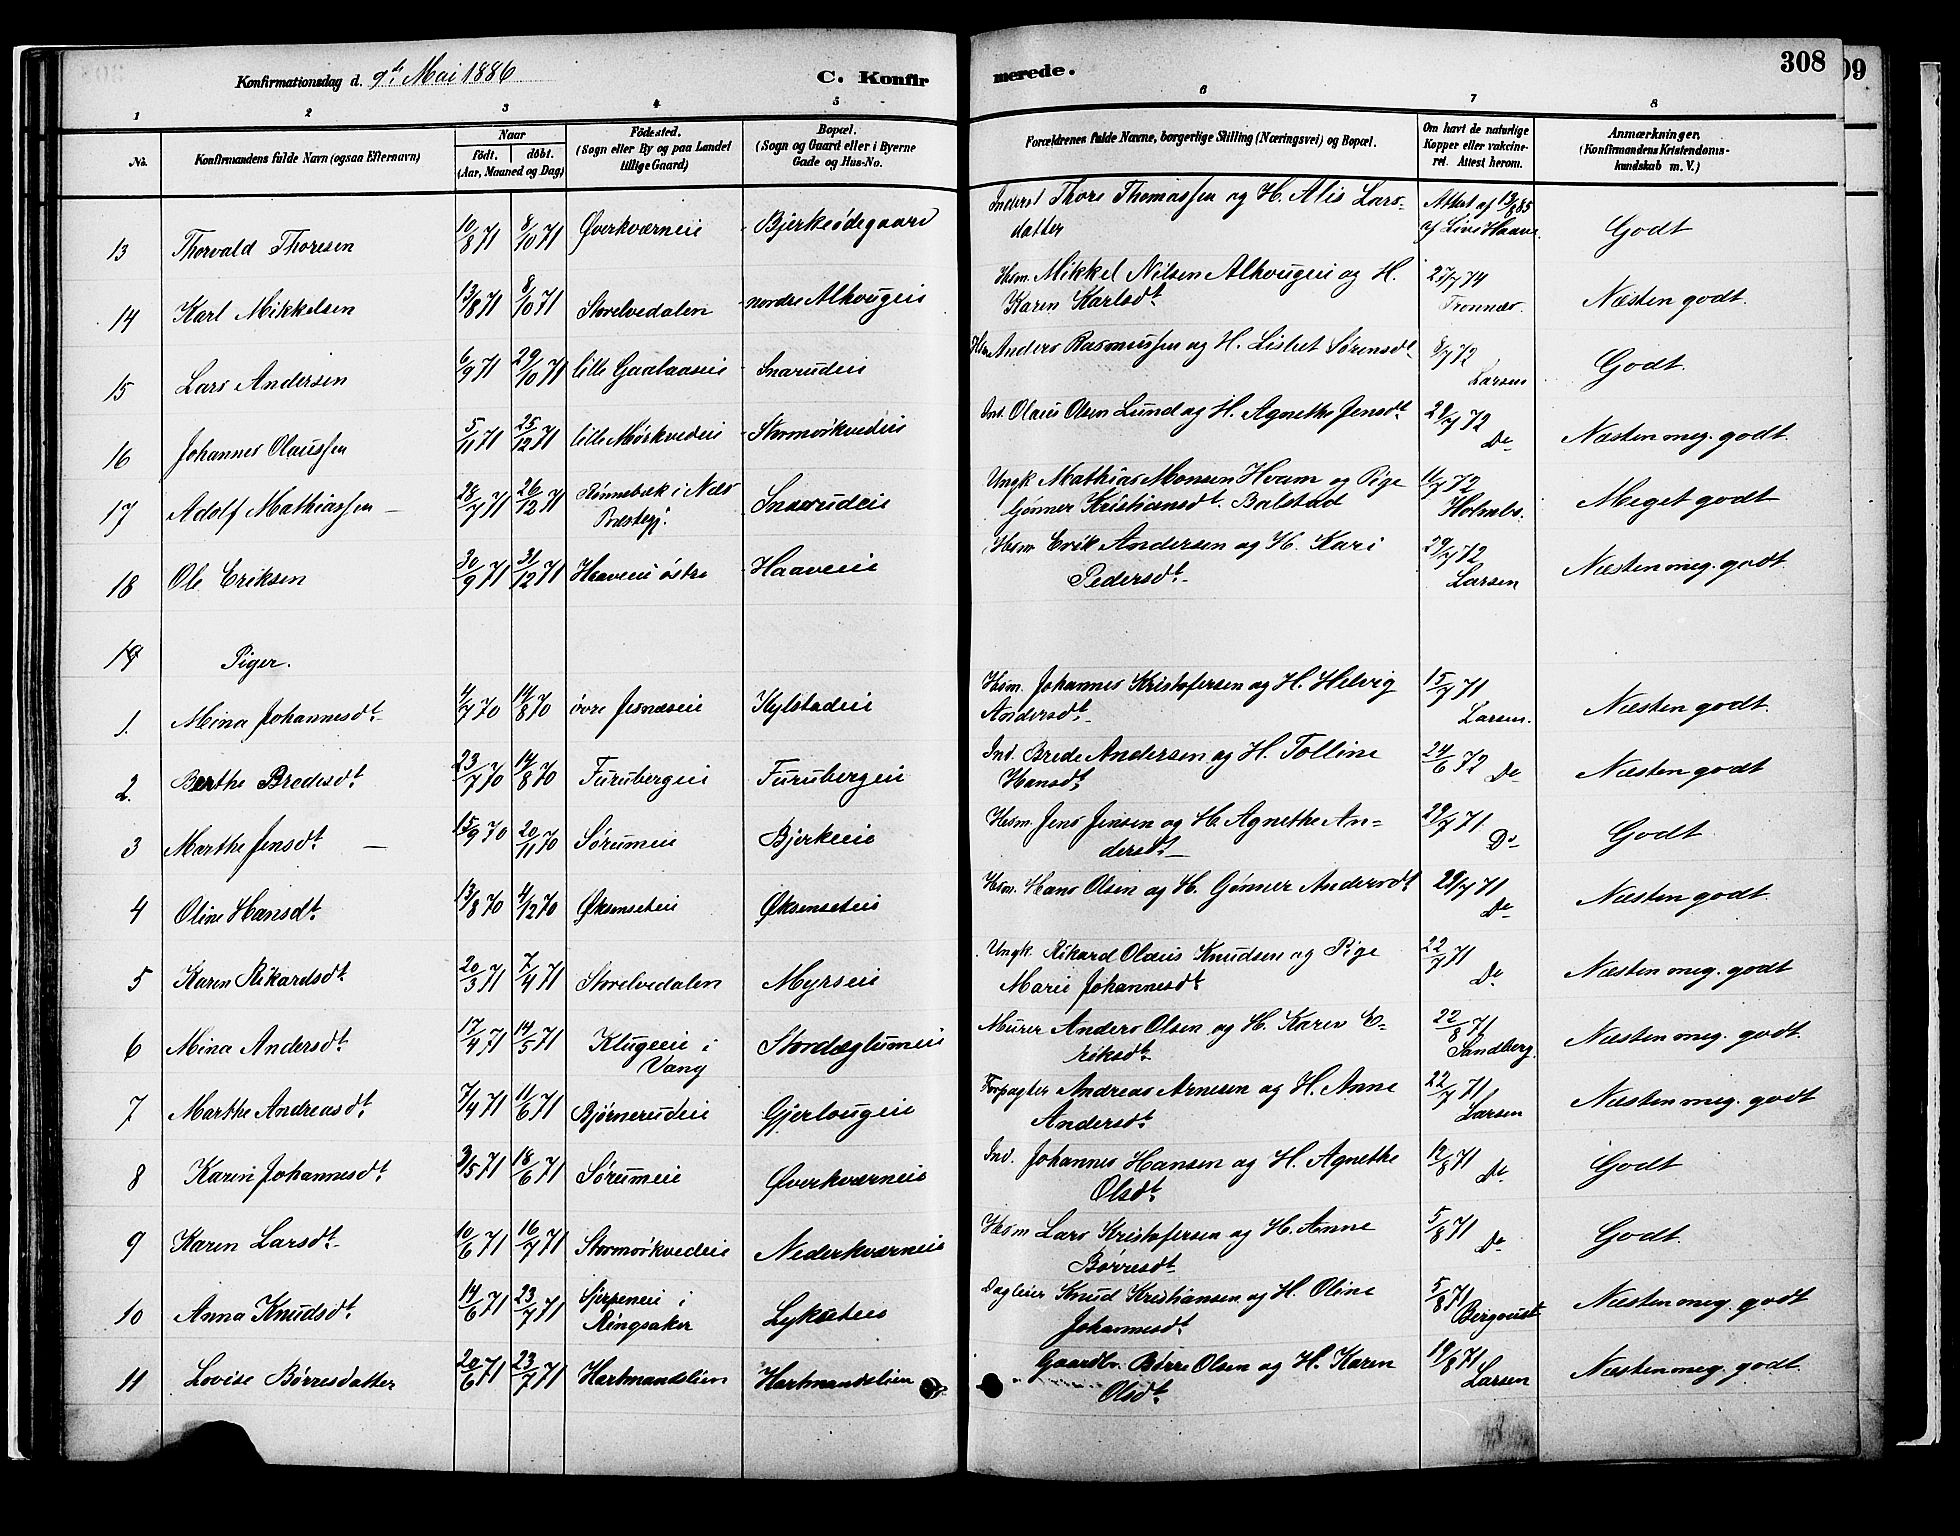 Konfirmationsdag d. 9de Mai 1886
C. Konfirmerede.
308
1 2 3 4 5 6 7 8
No. Konfirmandens fulde Navn (ogsaa Efternavn) Naar födt. döbt. (Aar, Maaned og Dag) Födested. (Sogn eller By og paa Landet tillige Gaard) Bopæl. (Sogn og Gaard eller i Byerne Gade og Hus-No. Forældrenes fulde Navne, borgerlige Stilling (Næringsvei) og Bopæl. Om havt de naturlige Kopper eller vaccineret. Attest herom. Anmærkninger. (Konfirmandens Kristendomskundskab m. V.)
13 Thorvald Thoresen 10/8 71 8/10 71 Øverkværneie Bjerkeødegaard Inderst Thore Thomassen og H. Alis Larsdatter Attest af 13/8 85 Godt
14 Karl Mikkelsen 13/8 71 8/10 71 Storelvedalen nordre Alhougeie Hsm. Mikkel Nilsen Alhougeie og H. Karen Karlsdt. 27/7 74 Næsten godt.
15 Lars Andersen 6/9 71 29/10 71 lille Gaalaaseie Snarudeie Hsm Anders Rasmussen og H. Lisbet Sørensdt. 8/7 72 Larsen Godt.
16 Johannes Olaussen 5/11 71 25/12 71 lille Mørkvedeie Stormørkvedeie Ind. Olaus Olsen Lund og H. Agnethe Jensdt. 28/7 72 Do Næsten meg. godt.
17 Adolf Mathiassen 28/7 71 26/12 71 Rønnebæk i Næs Præstegj. Snarudeie Ungk. Mathias Monsen Hvam og Pige Gønner Kristiansdt. Balstad 11/7 72 Meget godt
18 Ole Eriksen 30/9 71 31/12 71 Haaveeie østre Haaveeie Hsm Erik Andersen og H. Kari Pedersdt. 29/7 72 Larsen Næsten meg. godt
19 Piger.
1. Mina Johannesdt. 4/7 70 14/8 70 øvre Jesnæseie Kylstadeie Hsm. Johannes Kristofersen og H. Helvig Andersdt. 15/7 71 Larsen. Næsten godt.
2. Berthe Bredesdt. 23/7 70 14/8 70 Furubergeie Furubergeie Ind. Brede Andersen og H. Tolline Hansdt. 24/6 72 Do Næsten godt
3 Marthe Jensdt. 15/9 70 20/11 70 Sørumeie Bjerkeeie Hsm. Jens Jensen og H. Agnethe Andersdt. 29/7 71 Do Godt
4 Oline Hansdt. 13/8 70 4/12 70 Øksenseteie Øksenseteie Hsm. Hans Olsen og H. Gønner Andersdt 29/7 71 Do Næsten godt.
5 Karen Rikardsdt. 20/3 71 7/4 71 Storelvedalen Myrseie Ungk. Rikard Olaus Knudsen og Pige Marie Johannesdt. 22/7 71 Do Næsten meg. godt
6 Mina Andersdt. 17/4 71 14/5 71 Klugeeie i Vang Stordæglumeie Murer Anders Olsen og H. Karen Eriksdt. 22/8 71 Sandberg. Næsten meg. godt.
7 Marthe Andreasdt. 7/4 71 11/6 71 Bjørnerudeie Gjerlougeie Forpagter Andreas Arnesen og H. Anne Andersdt. 22/7 71 Larsen Næsten meg. godt
8 Karen Johannesdt. 3/5 71 18/6 71 Sørumeie Øverkværneie Ind. Johannes Hansen og H. Agnethe Olsdt. 12/8 71 Do Godt
9 Karen Larsdt. 10/6 71 16/7 71 Stormørkvedeie Nederkværneie Hsm Lars Kristofersen og H. Anne Børresdt. 5/8 71 Do Godt.
10 Anna Knudsdt. 14/6 71 23/7 71 Sjerpeneie i Ringsaker Lykseteie Dagleier Knud Kristiansen og H. Oline Johannesdt. 5/8 71 Næsten meg. godt
11 Lovise Børresdatter 20/6 71 23/7 71 Hartmandslien Hartmandslien Gaardbr. Børre Olsen og H. Karen Olsdt. 19/8 71 Larsen Næsten meg. godt.